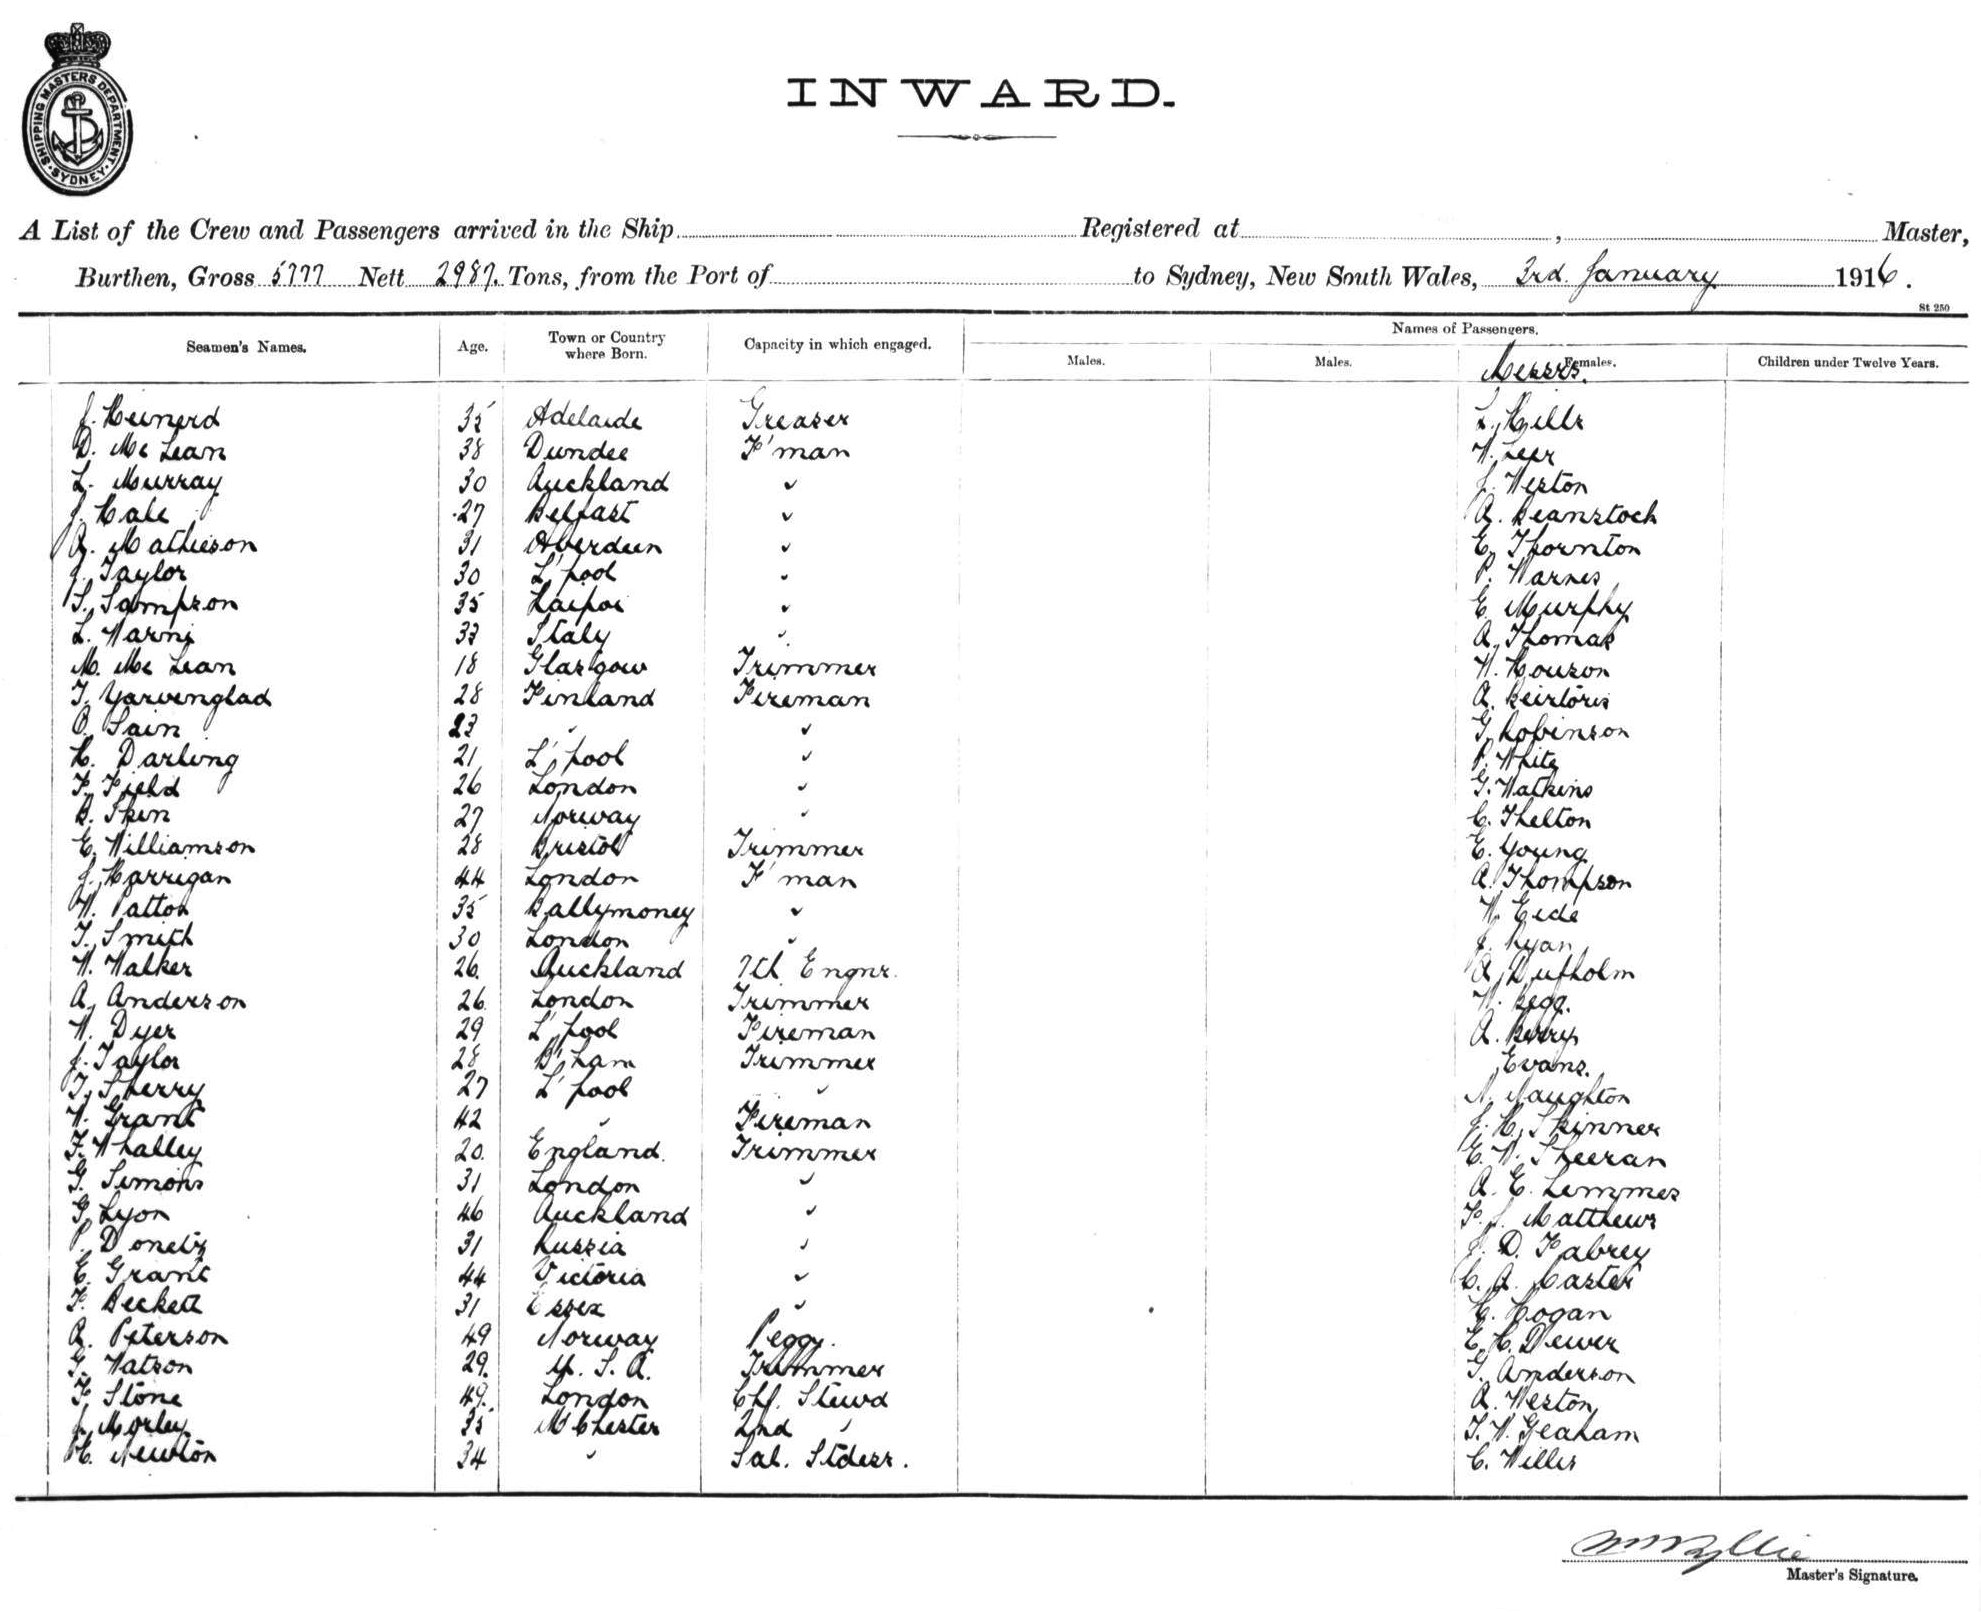 SHIPPING MASTERS DEPARTMENT · SYDNEY ·
INWARD.
A List of the Crew and Passengers arrived in the Ship Registered at , Master,
Burthen, Gross 5777 Nett 2987. Tons, from the Port of to Sydney, New South Wales, 3rd. January 1916.
St 250
Seamen's Names. Age. Town or Country where Born. Capacity in which engaged. Names of Passengers.
Males. Males. Females. Children under Twelve Years.
Messrs.
J. 35 Adelaide Greaser L. Hills
D. Mc Lean 38 Dundee F'man W. Leer
L. Murray 30 Auckland " J. Weston
J. Hale 27 Belfast " A. Beanstock
A. Mathieson 31 Aberdeen " E. Thornton
J. Taylor 30 L'pool " P. Warnes
S. Sampson 35 Kaipoi " E. Murphy
L. Warni 33 Italy " A. Thomas
M. Mc Lean 18 Glasgow Trimmer W. Houson
T. Yarvenglad 28 Finland Fireman A.
O. Sain 23 " " G. Robinson
H. Darling 21 L'pool " P. White
F. Field 26 London " G. Watkins
B. Sken 27 Norway " C. Thelton
E. Williamson 28 Bristol Trimmer E. Young
J. Harrigan 44 London F'man A. Thompson
W. Patton 35 Ballymoney " W. Eide
T. Smith 30 London " J. Ryan
W. Walker 26. Auckland 7th Engnr. A. Dufholm
A. Anderson 26 London Trimmer W. Begg.
W. Dyer 29 L'pool Fireman A. Berry
J. Taylor 28 B'ham Trimmer Evans.
T. Sherry 27 L'pool " N. Naughton
W. Grant 42 " Fireman J. H. Skinner
F. Whalley 20. England. Trimmer E. W. Sheeran
G. Simons 31 London " A. E. Lemmes
G. Lyon 46 Auckland " F. J. Matthews
P. 31 Russia " J. D. Fabrey
E. Grant 44 Victoria " C. A. Caster
F. Beckett 31 Essex " C. Hogan
A. Peterson 49 Norway Peggy. E. H. Dewer
G. Watson 29. U. S. A. Trimmer G. Anderson
F. Stone 49. London Chf. Stewd A. Weston
J. Morley 35 M'Chester 2nd " T. W. Geaham
H. Newton 34 " Sal. Stdess. C. Willis
Wyllie
Master's Signature.